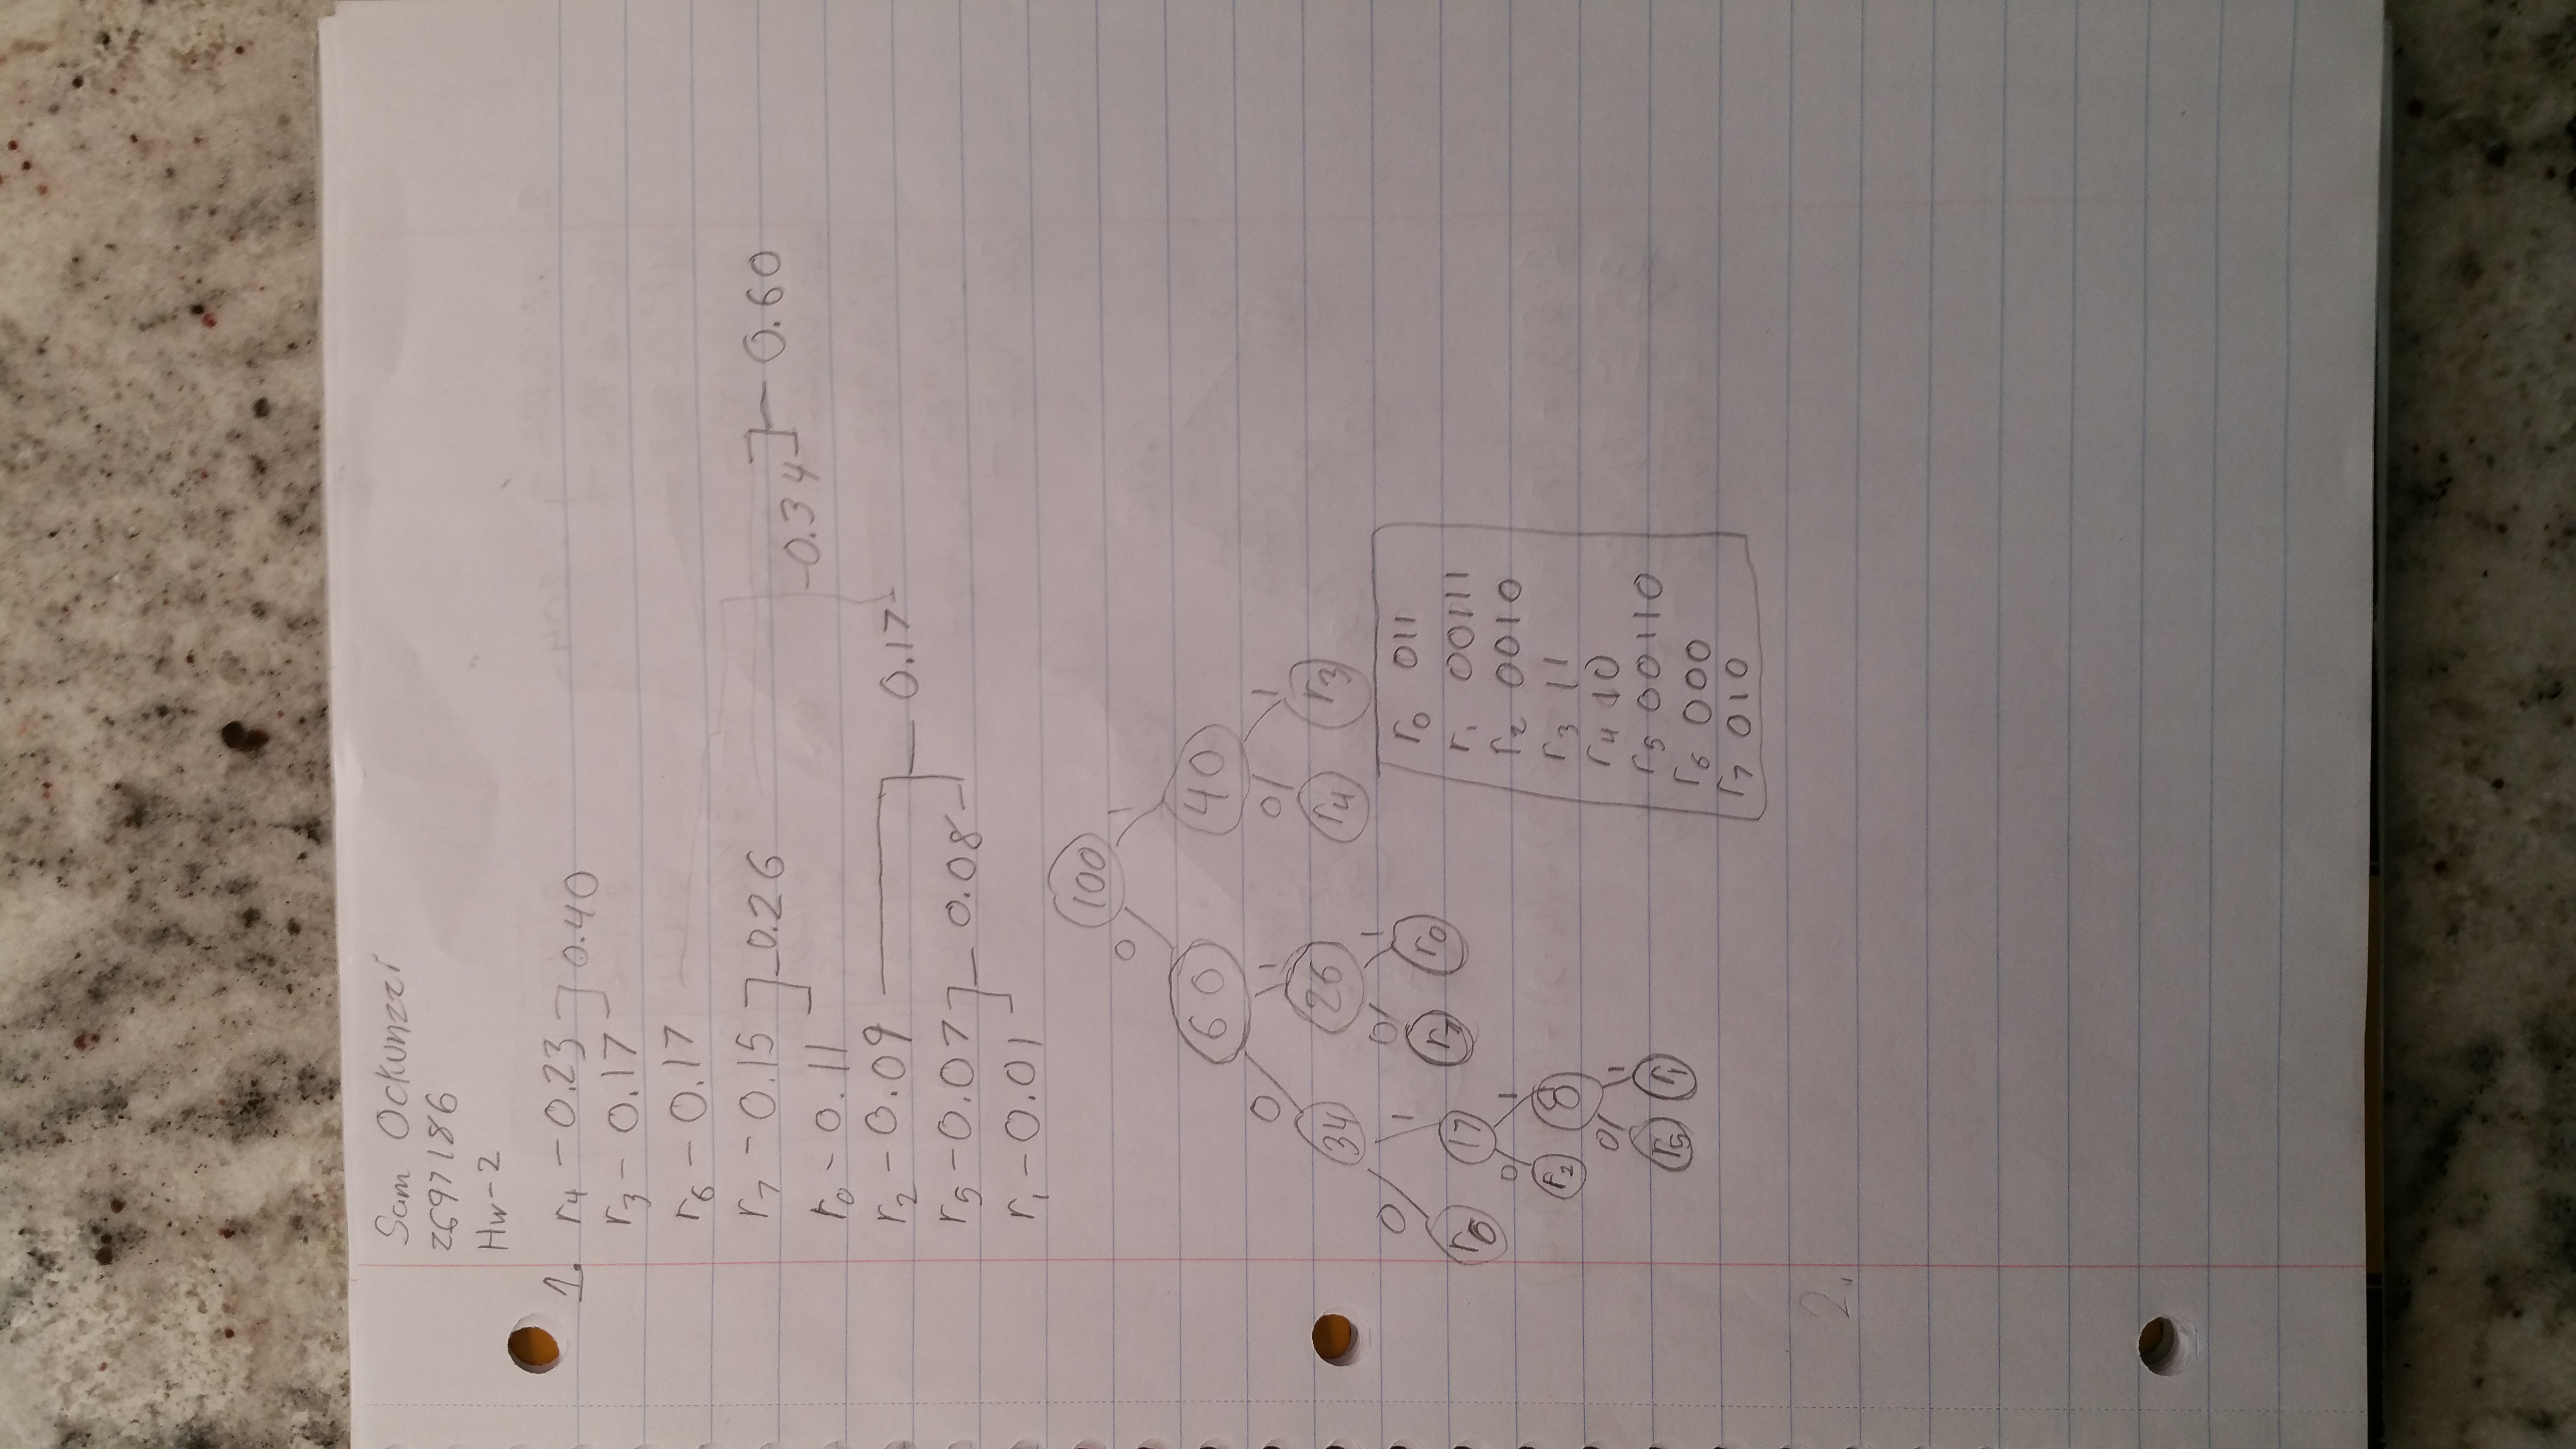 Sam Ockunzzi
2697186
Hw-2
1. r4 - 0.23 0.40
r3 - 0.17
r6 - 0.17
r7 - 0.15 0.26 0.34 0.60
r0 - 0.11
r2 - 0.09 0.17
r5 - 0.07 0.08
r1 - 0.01
100
0 1
60 40
0 1 0 1
34 26 r4 r3
0 1 0 1
r6 17 r7 r0
0 1
r2 8
0 1
r5 r1
r0 011
r1 00111
r2 0010
r3 11
r4 10
r5 00110
r6 000
r7 010
2.